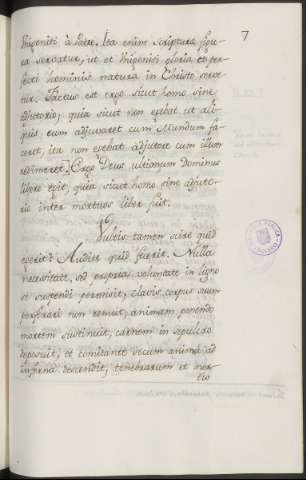 7
Unigeniti à Patre. Ita enim Scriptura
ea servatur, ut et Unigeniti gloria et per-
fecti hominis natura in Christo
tur. Factus est ergo sicut homo sine
adjutorio; quia sicut non egebat ut ali-
quis eum adjuvaret cum Mundum fa-
ceret, ita non egebat adjutore cum illum
redimeret. Ergo Deus ultionum Dominus
libere egit, quia sicut homo sine adjuto-
rio inter mortuos liber fuit.
Vultis tamen scire quid
egerit? Audite quid fecerit. Nulla
necessitate, sed propria voluntate in ligno
se suspendi permisit, clavis corpus suum
perforari non renuit, animam ponendo
mortem sustinuit, carnem in sepulcro
deposuit, et comitante secum anima ad
inferna descendit; tenebrarum et mor-
tis